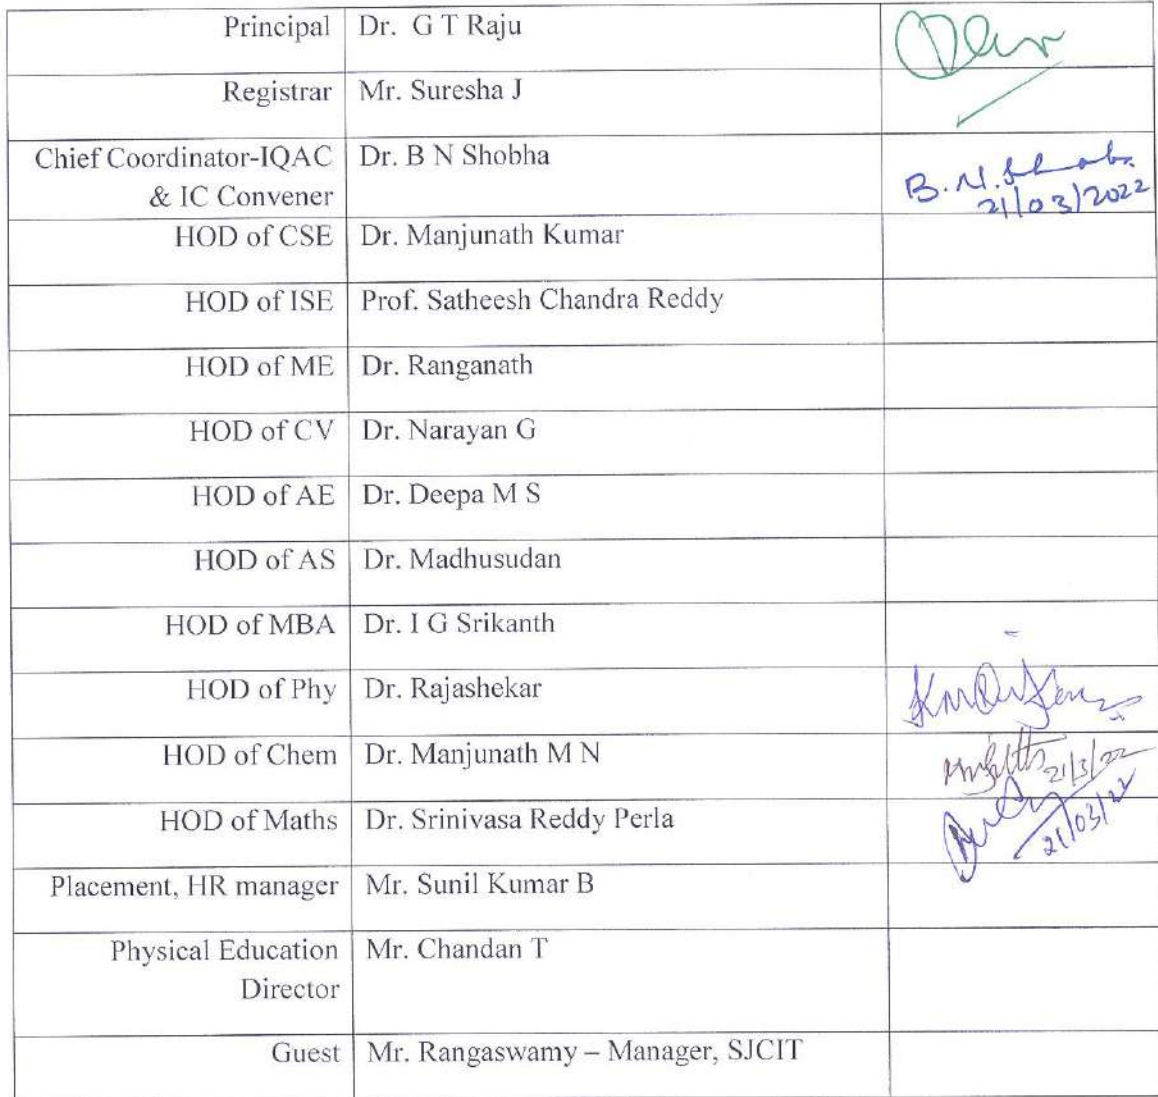 Principal Dr. G T Raju
Registrar Mr. Suresha J
Chief Coordinator-IQAC Dr. B N Shobha B.N.Shobha
& IC Convener 21/03/2022
HOD of CSE Dr. Manjunath Kumar
HOD of ISE Prof. Satheesh Chandra Reddy
HOD of ME Dr. Ranganath
HOD of CV Dr. Narayan G
HOD of AE Dr. Deepa M S
HOD of AS Dr. Madhusudan
HOD of MBA Dr. I G Srikanth
HOD of Phy Dr. Rajashekar
HOD of Chem Dr. Manjunath M N 21/3/22
HOD of Maths Dr. Srinivasa Reddy Perla 21/03/22
Placement, HR manager Mr. Sunil Kumar B
Physical Education Mr. Chandan T
Director
Guest Mr. Rangaswamy – Manager, SJCIT